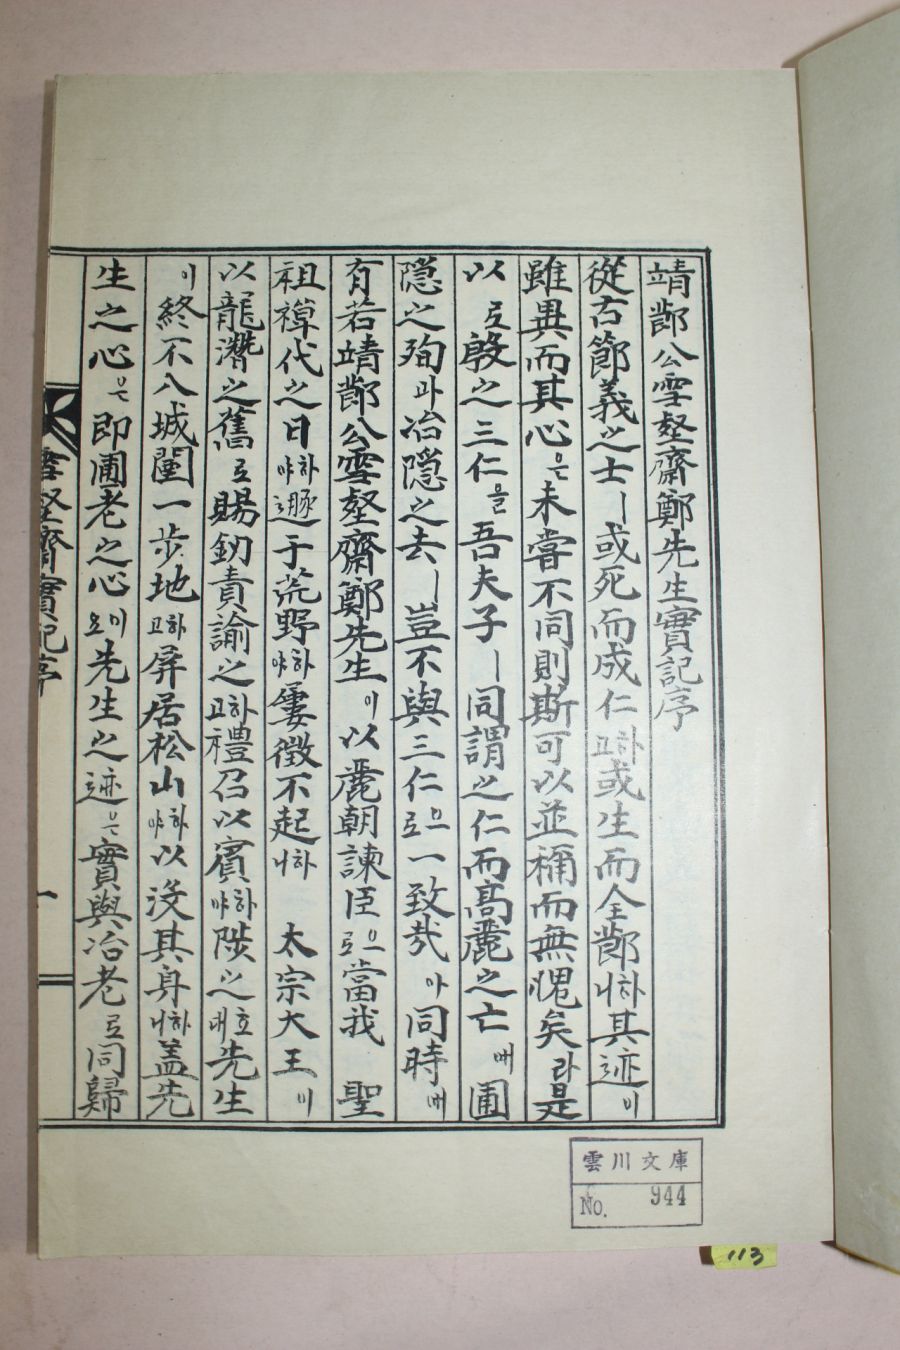 靖節公雪壑齋鄭先生實記序
從古節義之士ㅣ或死而成仁하고或生而全節하니其迹이
雖異而其心은未嘗不同則斯可以並稱而無愧矣라是
以로殷之三仁을吾夫子ㅣ同謂之仁而高麗之亡에圃
隱之殉과冶隱之去ㅣ豈不與三仁으로一致哉아同時에
有若靖節公雪壑齋鄭先生이以麗朝諫臣으로當我 聖
祖禪代之日하야遯于荒野하야屢徵不起하니 太宗大王이
以龍潛之舊로賜釰責諭之하고禮召以賓하야陟之호대先生
이終不入城闉一步地하고屛居松山하야以沒其身하니盖先
生之心은即圃老之心이오先生之迹은實與冶老로同歸
雪壑齋實記序
一
雲川文庫
No. 944
113